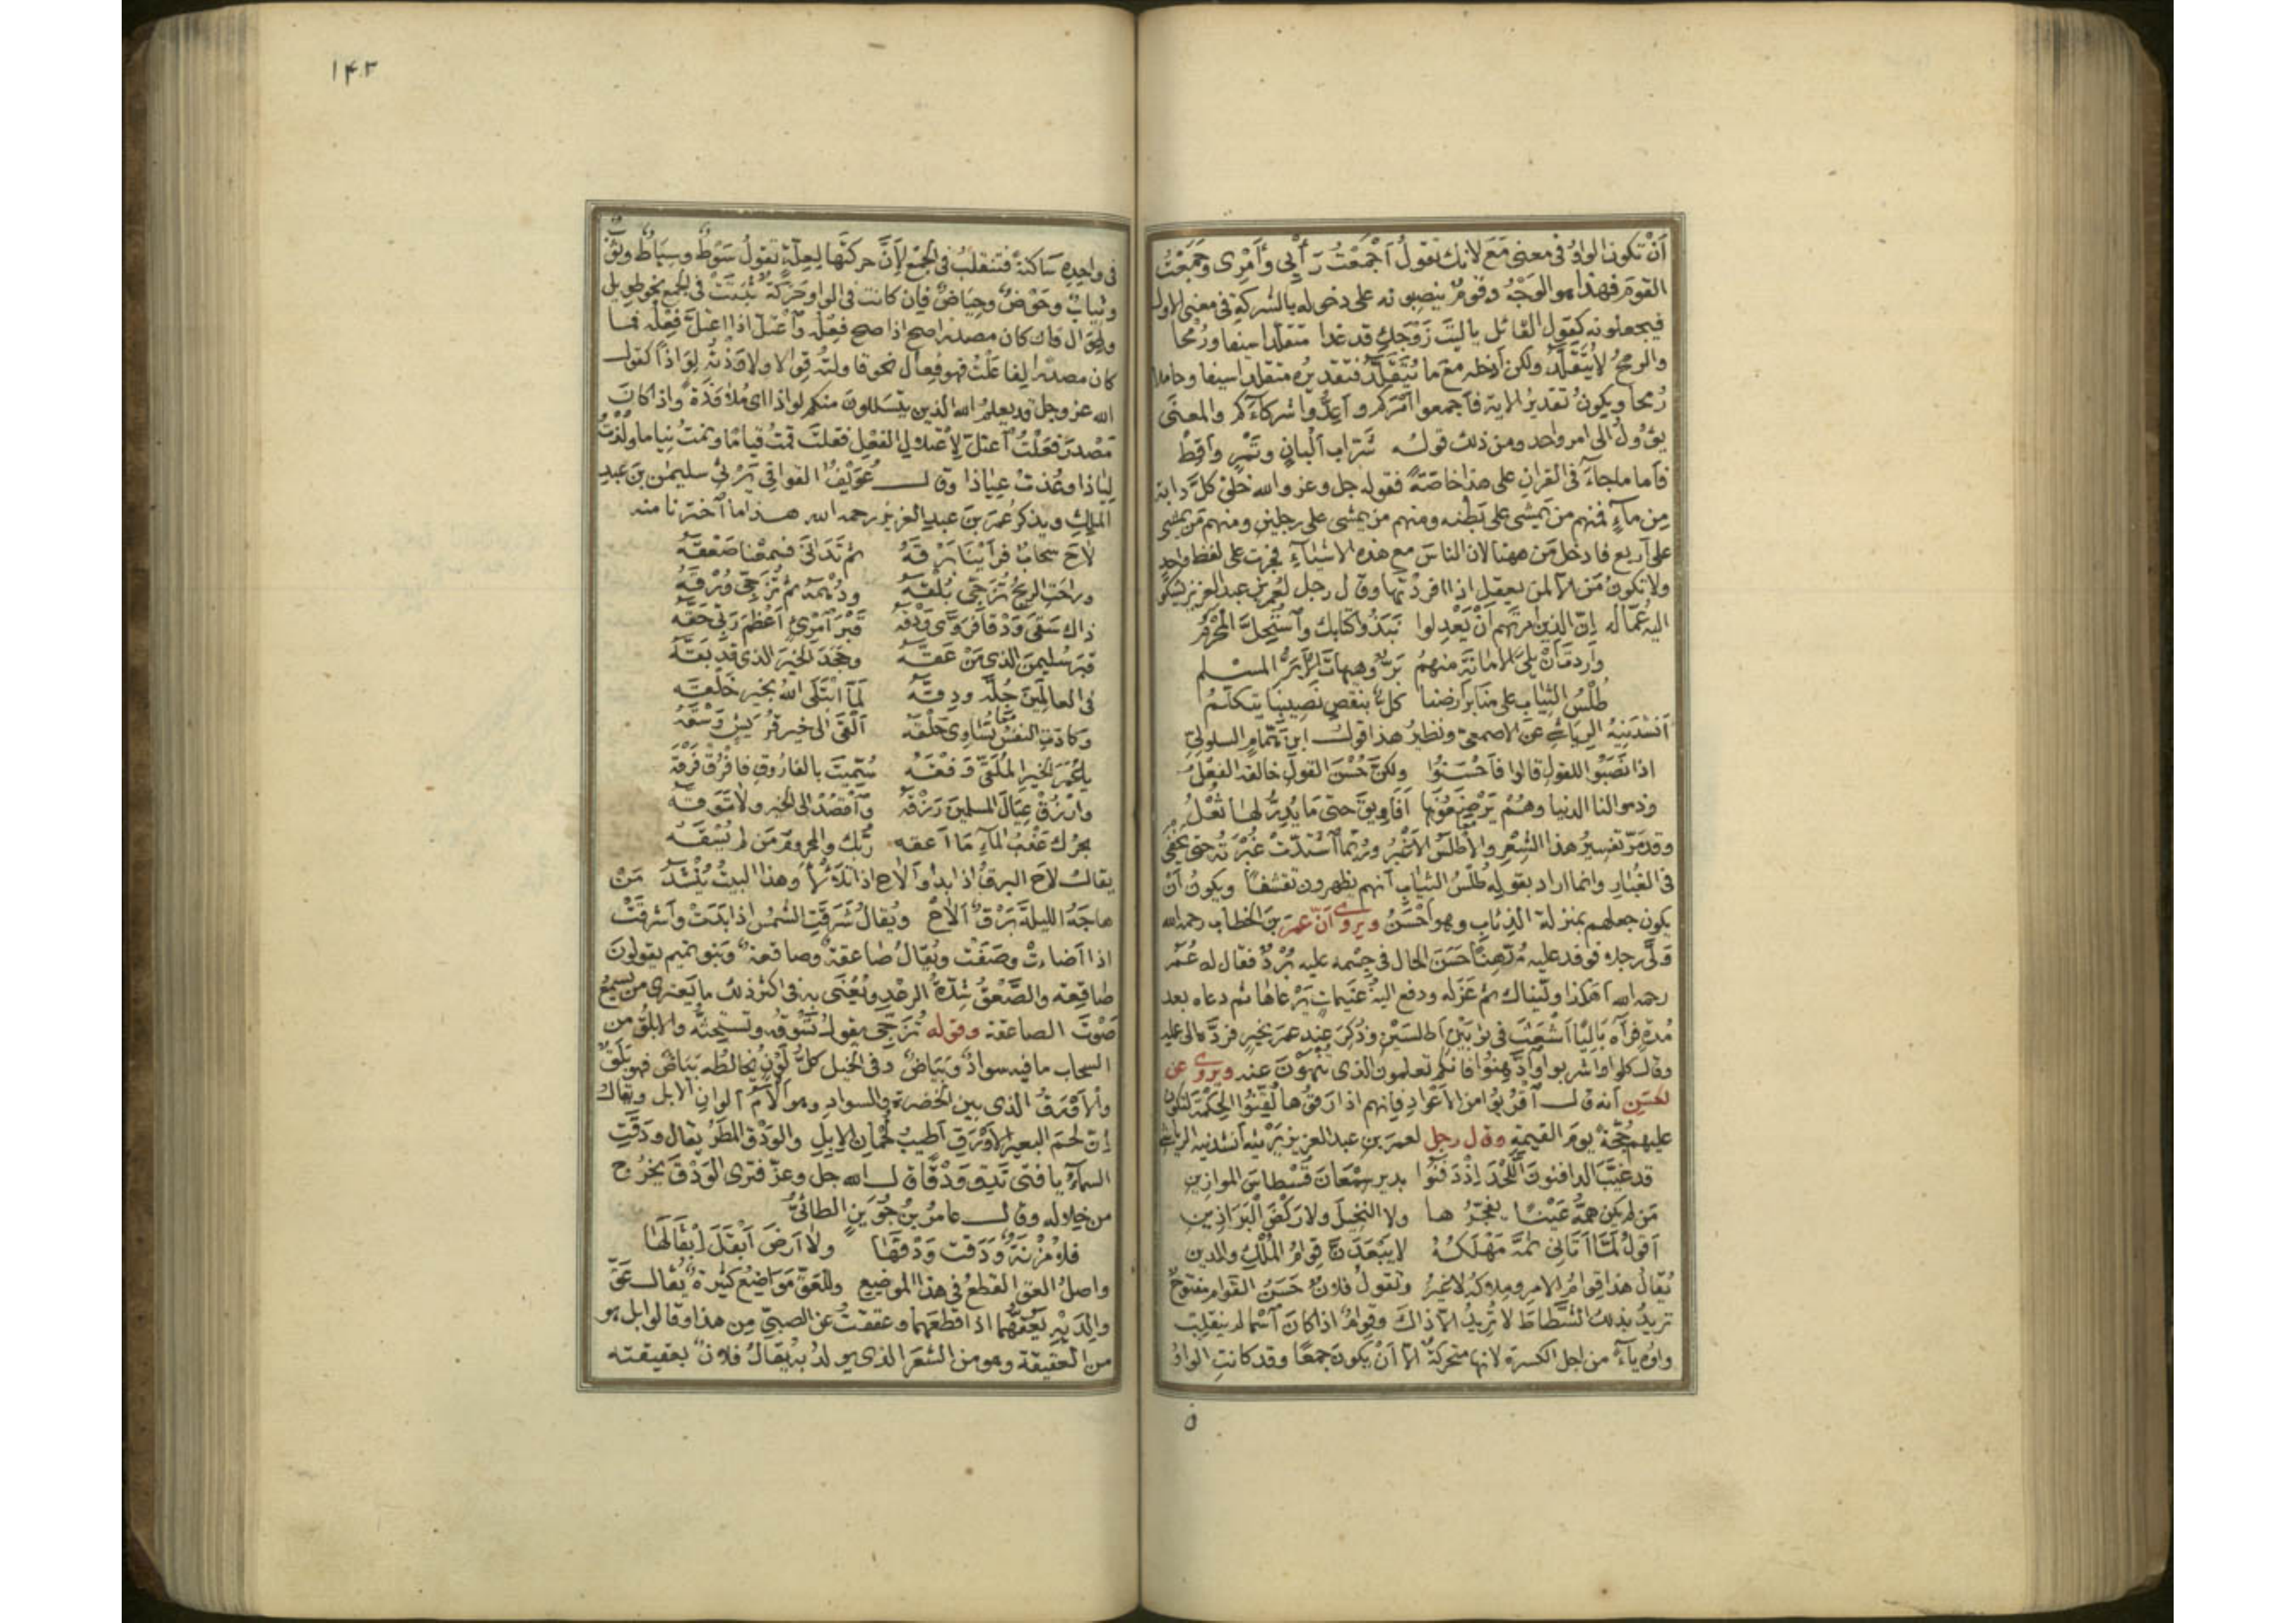 أَنْ تكونَ الواوُ فى معنى مَعَ لانك تقولُ اَجْمَعْتُ رَأْيِى وأَمْرِى وجَمَعْتُ
القومَ فهذا هو الوَجْهُ وقومٌ ينصِبونه على دخوله بالشركةِ فى معنى الاول
فيجعلونه كقول القائل ياليتَ زَوْجَكِ قد غدا متقلدا سيفا ورُمْحا
والرمحُ لايُتَقَلَّدُ ولكن أدخله مع ما يُتَقَلَّدُ فتقديرُه متقلدا سيفا وحاملا
رُمحا ويكونُ تقديرُ الاية فأجمعوا أَمْرَكم وأَعِدُّوا شركآءَكم والمعنَى
يؤُولُ الى امر واحد ومن ذلك قولُه شَرّابُ أَلْبانٍ وتَمْرٍ وأَقِطْ
فأما ماجآءَ فى القرانِ على هذا خاصّةً فقوله جل وعز والله خلق كلَّ دابة
مِن مآءٍ فمنهم من يَمْشى على بَطْنه ومنهم من يمشى على رجلين ومنهم مَن يمشى
على أربع فأدخل مَن ههنا لان الناسَ مع هذه الاشيآءِ فجرت على لفظ واحدٍ
ولا تكونُ مَن الا لمن يعقِل اذا افردتها وقال رجل لعُمرَ بنِ عبدِ العزيز يشكُو
اليه عُمّالَه إنّ الذينَ امرتَهم أَنْ يَعْدِلوا نَبَذُوا كتابَك وٱسْتُحِلَّ المَحْرَمُ
وأردتَ أَنْ يَلِىَ الأمانةَ منهمُ بَرٌّ وهيهاتَ الأَبَرُّ المسْلم
طُلْسُ الثيابِ على منابرِ أرضنا كلٌّ بنقصِ نَصِيبِنا يتكلّمُ
أَنْشَدَنِيهُ الرِياشىّ عن الاصمعىّ ونظيرُ هذا قولُ ابن هَمّامٍ السلولىّ
اذا نَصَبُوا للقول قالوا فأَحْسَنُوا ولكنّ حُسْنَ القولِ خالفه الفِعْلُ
وذموا لنا الدنيا وهُمْ يَرْضَِعُونَها أَفاوِيقَ حتّى مَا يُدِرُّ لها ثُعْلُ
وقد مَرّ تفسيرُ هذا الشِعْرِ والأطلَسُ الأَغْبَرُ ورُبَّما ٱشتدّتْ غُبْرَتُه حتى يَخْفَى
فى الغُبارِ وانما اراد بقولِه طُلْسُ الثياب أنهم يظهرون تقشفًا ويكونُ أَنْ
يكون جعلهم بمنزلة الذئابِ وهو أَحْسَنُ ويروى أنّ عمرَ بنَ الخطاب رحمه الله
وَلَّى رجلا فوفد عليه مُدَّهِنًا حَسَنَ الحال فى جِسْمِه عليه بُرْدٌ فقال له عُمَرُ
رحمه الله أهكذا ولّيناك ثم عَزَلَه ودفع اليهِ غُنَيماتٍ يَرْعاها ثم دعاه بعد
مُدّةٍ فرآه بَالِيًا أَشْعَثَ فى ثوبَيْنِ أطلسَيْنِ وذُكِرَ عند عمرَ بخيرٍ فردّه الى عمله
وقال كلوا واشربوا وٱدَّهِنُوا فانكم تعلمون الذى تُنْهَوْنَ عنه ويروى عن
الحسن أنه قال ٱقْرُبُوا من الأَعْوادِ فإنهم اذا رَقَوْها لُقِّنُوا الحكمة لتكونَ
عليهم حُجّةً يومَ القيمةِ وقال رجل لعمرَ بن عبدِ العزيز يَرْثيهِ أنشدنيه الرياشى
قد غَيَّبَ الدافنون اللَّحْدَ إذْ دَفَنُوا بدير سِمْعَانَ قُسْطاسَ الموازينِ
مَن لم يكن هَمُّه عَيْنًا يفَجِّرُها ولا النخيلَ ولا رَكْضَ البَرَاذِينِ
أقولُ لَمّا أَتَانِى ثَمَّ مَهْلَكُهُ لايَبْعَدَنَّ قِوامُ المُلْكِ والدينِ
يُقالُ هذا قِوامُ الامر ومِلاكه لاغيرُ وتقولُ فلانٌ حَسَنُ القَوام مفتوحٌ
تريدُ بذلك الشَّطاطَ لا تُريدُ الا ذاكَ وقِوامٌ اذا كان ٱسْمًا لم ينقلِبْ
واوُه يآءً من اجل الكسرة لانها متحركةٌ الا أَنْ يكونَ جمعًا وقد كانتِ الواوُ
١٤٣
فى واحِدِه سَاكنةً فتنقلبُ فى الجَمْعِ لأنّ حركتها لِعلّةٍ تقولُ سَوْطٌ وسِياطٌ وثوبٌ
وثيابٌ وحَوْضٌ وحِياضٌ فإن كانت فى الواو حَرَكةٌ ثبتَتْ فى الجمع نحو طويل
وطِوال فان كان مصدرا صح اذا صح فِعْلُه وٱعْتلّ اذا اعتلّ فِعْلُه فما
كان مصدرًا لِفاعَلْتُ فهو فِعال نحو قاولتُه قِوالا ولاوَذْتُه لِواذًا كقول
الله عز وجل قد يعلمُ الله الذين يتسللون منكم لِواذا اى مُلاوَذَةً واذا كانَ
مَصْدَرَ فَعَلْتُ ٱعتلّ لاِعْتلالِ الفعل فقلتَ قمتُ قيامًا ونمتُ نِياما ولُذْتُ
لِياذا وعُذتُ عِياذا وقال عُوَيْفُ القوافى يَرْثِى سليمٰن بنَ عبدِ
الملكِ ويذكرُ عُمَرَ بنَ عبدِ العزيزِ رحمه الله هذا ما ٱخترنا منه
لاحَ سحابٌ فرأَيْنا بَرْقَهْ ثم تَدَانَى فسَمِعْنا صَعْقَهْ
وراحَتِ الريحُ تُزَجِّى بُلْقَهْ ودُهْمَهُ ثم تُزَجِّى وُرْقَهْ
ذاك سَقَى وَدْقًا فَرَوَّى وَدْقُهْ قَبْرَ ٱمْرِئٍ أعْظَمَ رَبّى حَقَّهْ
قبرَ سُليمٰنَ الذى مَنْ عَقَّهْ وجَحَدَ الخيرَ الذى قد بَقَّهْ
فى العالَمِينَ جِلَّه ودِقَّهْ لَمّا ٱبْتَلَى اللهُ بخيرٍ خَلْقَهْ
وكادتِ النفسُ تُساوِى حَلْقَهْ معا أَلْقَى الى خيرِ قُرَيشٍ وَسْقَهْ
ياعُمَرَ الخيرِ المُلَقَّى وَفْقَهْ سُمِّيتَ بالفارُوقِ فافْرُقْ فَرْقَهْ
وارْزُقْ عِيالَ المسلمينَ رَزْقَهْ وٱقْصِدْ الى الخيرِ ولا تَوَقَّهْ
بحرُك عَذْبُ المآءِ مَا أعقّه ربُّك والمحرومُ مَن لم يُسْقَهْ
يقال لاحَ البرقُ اذا بدا وأَلاحَ اذا تلألأ وهذا البيتُ يُنْشَدُ مَنْ
هاجَهُ الليلةَ بَرْقٌ أَلاحْ ويُقالُ شَرَقَتِ الشمسُ اذا بَدَتْ وأَشرقَتْ
اذا أضاءتْ وصَفَتْ ويُقالُ صَاعقةٌ وصاقعةٌ وبَنو تميم يقولونَ
صَاقِعة والصَّعْقُ شِدّةُ الرعْدِ ويُعْنَى به فى اكثر ذلك ما يَعترى من يسمعُ
صَوْتَ الصاعقة وقوله تُزَجِّى يقولُ تَسُوقُه وتستحِثُّه والابلَقُ من
السحاب ما فيه سوادٌ وبَيَاضٌ وفى الخيل كلُّ لَوْنٍ يُخالِطُه بَياضٌ فهو بَلَقٌ
والأَوْرَقُ الذى بين الخُضرة والسوادِ وهو ٱلأَمُ ألوانِ الابل ويُقالُ
إنّ لحمَ البعيرِ الأَوْرَقِ أطيبُ لُحْمانِ الإبلِ والوَدْقُ المطَرُ يقال ودَقَتِ
السمآءُ يا فتى تَدِقُ وَدْقًا قال الله جل وعزّ فترى الوَدْقَ يخرُج
من خِلالِه وقال عامرُ بنُ جُوَينٍ الطائىُّ
فلا مُزْنَةٌ وَدَقَتْ وَدْقَهَا ولا أَرضَ أَبْقَلَ إبْقَالَهَا
واصلُ العَقِّ القطعُ فى هذا الموضِعِ وللعَقِّ مَوَاضِعُ كثيرةٌ يُقال عَقّ
والِدَيْهِ يَعُقُّهما اذا قطعَهما وعققتُ عن الصبىِّ مِن هذا وقالوا بل هو
من العَقيقة وهو من الشعَرِ الذى يولد به يقالُ فلانٌ بعقيقته